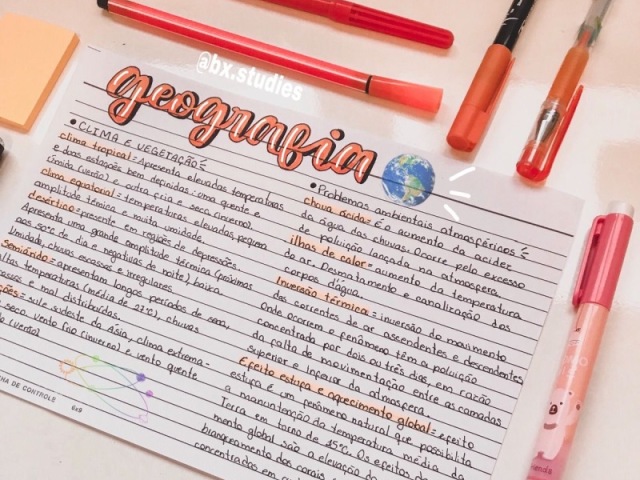 @bx.studies
geografia
• CLIMA E VEGETAÇÃO
clima tropical = Apresenta elevadas temperaturas
e duas estações bem definidas: uma quente e
úmida (verão) e outra fria e seca (inverno).
clima equatorial = temperaturas elevadas, pequena
amplitude térmica e muita umidade.
desértico = presente em regiões de depressões.
Apresenta uma grande amplitude térmica (próximas
aos 50°C de dia e negativas de noite), baixa
umidade, chuvas escassas e irregulares.
semiárido = apresentam longos períodos de seca,
altas temperaturas (média de 27°C), chuvas
e mal distribuídas.
= sul e sudeste da Ásia, clima extrema-
seco, vento frio (inverno) e vento quente
(verão)
• Problemas ambientais atmosféricos
chuva ácida = É o aumento da acidez
da água das chuvas. Ocorre pelo excesso
de poluição lançada na atmosfera.
ilhas de calor = aumento da temperatura
do ar. Desmatamento e canalização dos
corpos d'água.
Inversão térmica = inversão do movimento
das correntes de ar ascendentes e descendentes
Onde ocorrem o fenômeno têm a poluição
concentrada por dois ou três dias, em razão
da falta de movimentação entre as camadas
superior e inferior da atmosfera.
Efeito estufa e aquecimento global = efeito
estufa é um fenômeno natural que possibilita
a manuntenção da temperatura média da
Terra em torno de 15°C. Os efeitos do
mento global são a elevação do
branqueamento dos corais
concentrados em
DE CONTROLE
6x9